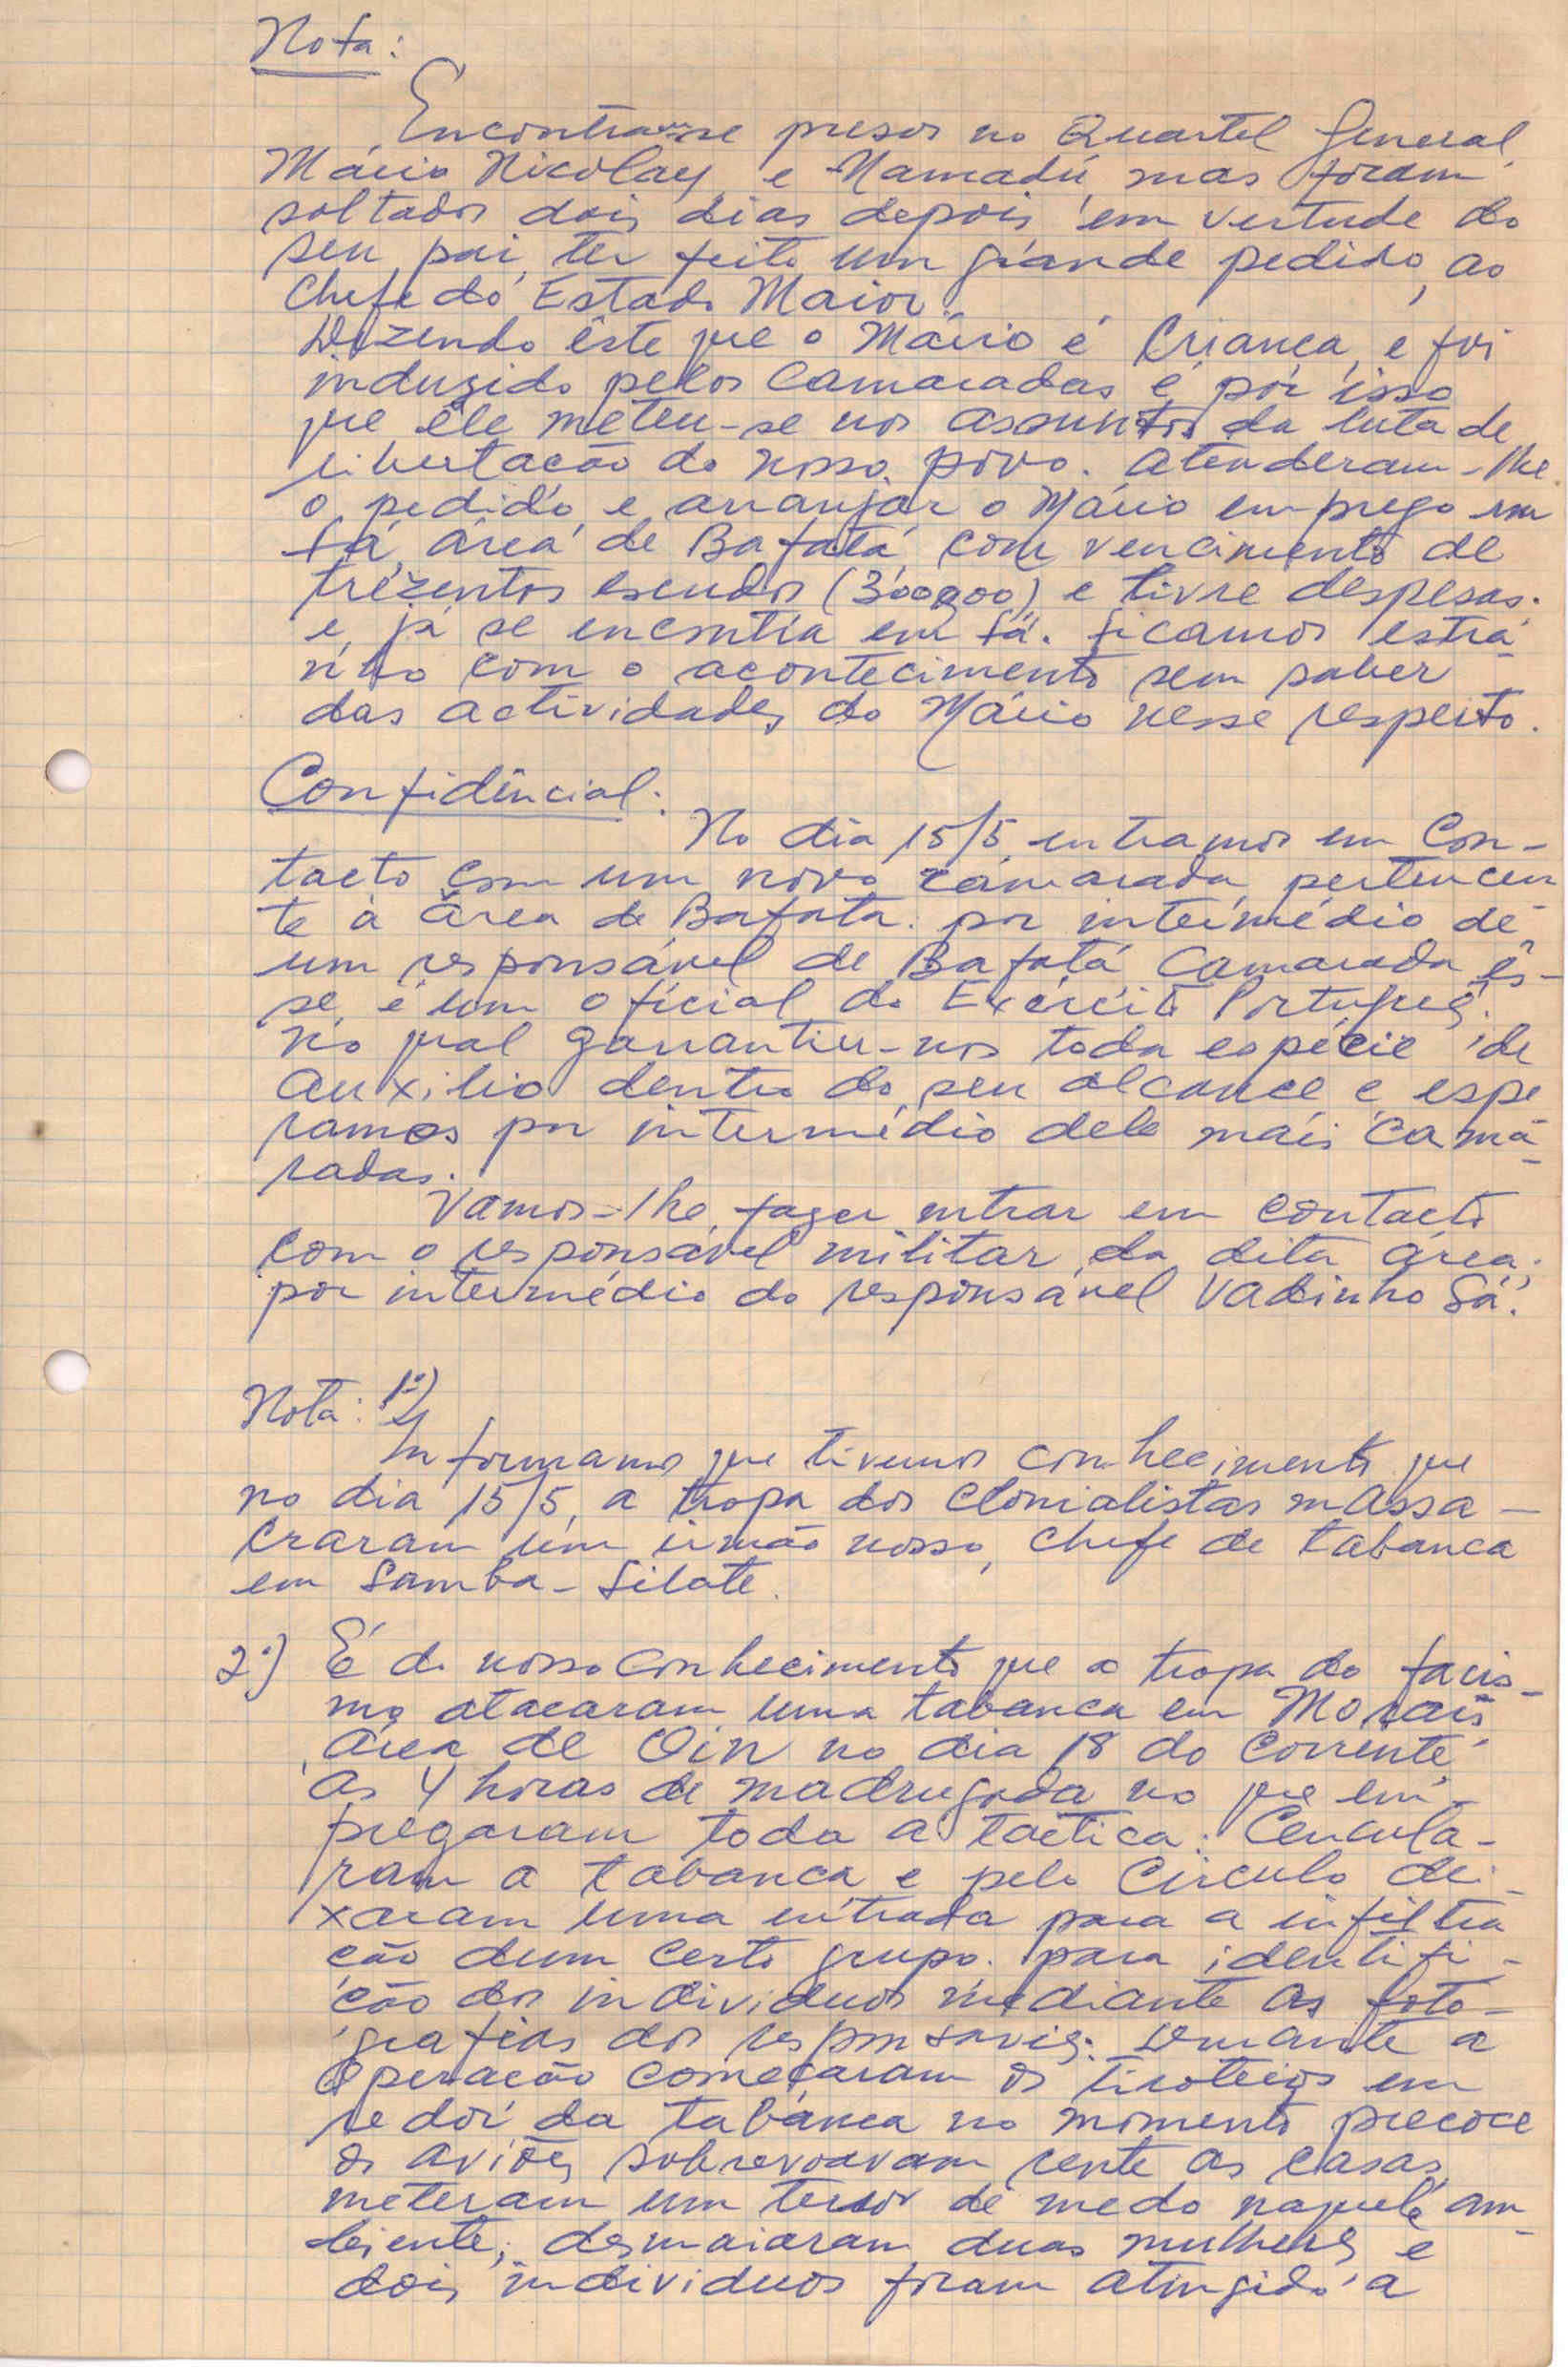 Nota:
Encontram-se presos no Quartel General,
Mário Nicolay, e Mamadú, mas foram
soltados dois dias depois em vertude do
seu pai ter feito um grande pedido, ao
Chefe do Estado Maior.
Dizendo êste que o Mário é Criança, e foi
induzido pelos Camaradas e por isso
que êle meteu-se nos assuntos da luta de
libertação do nosso povo. Atenderam-lhe
o pedido e arranjar o Mário emprego em
Fá, área de Bafatá, com vencimento de
trezentos escudos (300$00) e livre despesas.
e já se encontra em Fá. Ficamos estrá-
nho com o acontecimento sem saber
das actividades do Mário nesse respeito.
Confidêncial:
No dia 15/5, entramos em Con-
tacto com um novo camarada, pertencen
te à Área de Bafata. por intermédio de
um responsável de Bafatá, Camarada ês-
se, é um oficial do Exército Português.
no qual garrantiu-nos toda espécie de
auxilio dentro do seu alcance e espe
ramos por intermédio dele mais cama-
radas.
Vamos-lhe, fazer entrar em contacto
com o responsável militar da dita área,
por intermédio do responsável Vadinho Sá.
Nota: 1º)
Informamos que tivemos conhecimento que
no dia 15/5, a tropa dos Clonialistas massa-
craram um irmão nosso, chefe de tabanca
em Samba-Silate.
2º) É do nosso conhecimento que a tropa do facis-
mo atacaram uma tabanca em Morais
Área de Oin no dia 18 do corrente
as 4 horas de madrugada no que em-
pregaram toda a táctica: Cercula-
ram a tabanca e pelo Circulo dei-
xaram uma entrada para a infiltra
ção dum certo grupo. para identifi-
ção dos individuos mediante as foto-
grafias dos responsavies. Durante a
Operação começaram os tiroteios em
redor da tabanca no momento precoce
os aviões sobrevoavam rente as casas,
meteram um terror de medo naquele am-
biente, desmaiaram duas mulheres e
dois individuos foram atingido a